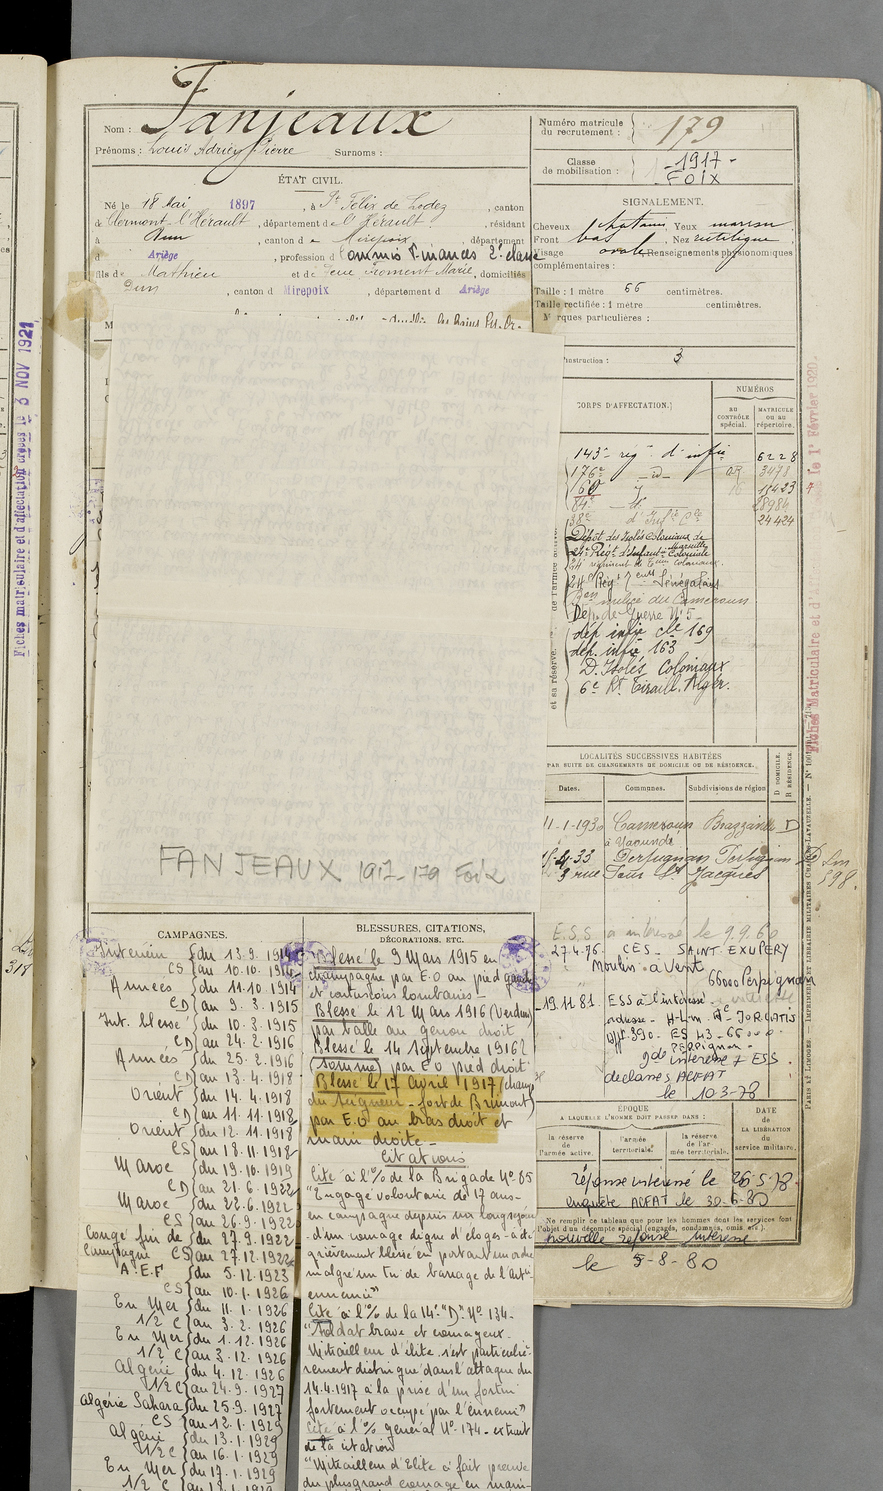 Nom : Fanjeaux
Prénoms : Louis Adrien Pierre Surnoms :
ÉTAT CIVIL.
Né le 18 Mai 1897, à St Félix de Lodez, canton
de Clermont-l'Hérault, département de l'Hérault, résidant
à Dun, canton de Mirepoix, département
d Ariège, profession d Commis Finances 2e classe
fils de Mathieu et de feue Froment Marie, domiciliés
Dun, canton Mirepoix, département d Ariège
M
les Bains Pes. Or.
Numéro matricule
du recrutement : 179
Classe
de mobilisation : -1917-
FOIX
SIGNALEMENT.
Cheveux chatain Yeux marron
Front bas, Nez rectiligne,
Visage ovale Renseignements physionomiques
complémentaires :
Taille : 1 mètre 66 centimètres.
Taille rectifiée : 1 mètre centimètres.
Marques particulières :
instruction : 3
CORPS D'AFFECTATION.
NUMÉROS
AU CONTRÔLE spécial.
MATRICULE ou au répertoire.
143e régt d'infie 6228
176e -d- 3478
38e d'Infie Cle 24424
Dépôt des Isolés Coloniaux de Marseille
24e Régt d'Infant. Coloniale
24e régiment de tirail. coloniaux.
24e Rég. Tirll Sénégalais
milice du Cameroun
Dép. de Guerre N° 5
dép infie cle 169
dép. infie 163
D. Isolés Coloniaux
6e Rt Tiraill. Alger.
et sa réserve.
LOCALITÉS SUCCESSIVES HABITÉES
PAR SUITE DE CHANGEMENTS DE DOMICILE OU DE RÉSIDENCE.
Dates. Communes. Subdivisions de région
D DOMICILE.
R RÉSIDENCE.
11-1-1930 Cameroun Brazzaville D
à Yaoundé
Perpignan Perpignan D
3 rue Four St Jacques
E.S.S à intéressé le 9.9.60
27.4.76. CES - SAINT EXUPERY
Moulin-à Vent
66000 Perpignan
19.11 81. ESS à l'intéressé.
adresse - H-L-M
66000
PERPIGNAN
intéressé + ESS
déclassés ACFAT
le 10-3-78
ÉPOQUE
A LAQUELLE L'HOMME DOIT PASSER DANS :
la réserve de l'armée active.
l'armée territoriale.
la réserve de l'armée territoriale.
DATE DE LA LIBÉRATION du service militaire.
réponse intéressé le 26-5-78-
enquête ACFAT le 30-6-80
Ne remplir ce tableau que pour les hommes dont les services font
l'objet d'un décompte spécial (engagés, condamnés, omis etc.).
nouvelle réponse intéressé
le 5-8-80
PARIS ET LIMOGES. — IMPRIMERIE ET LIBRAIRIE MILITAIRES CHARLES-LAVAUZELLE.
Fiches Matriculaire et d'A le 1er Février 1920.
Fiches matriculaire et d'affectation créées le 3 NOV 1921
318
FANJEAUX 1917-179 Foix
CAMPAGNES.
Intérieur du 13.9.1914
CS au 10.10.1914
Armées du 11.10.1914
CD au 9.3.1915
Int. blessé du 10.3.1915
CD au 24.2.1916
Armées du 25.2.1916
CD au 13.4.1918
Orient du 14.4.1918
CD au 11.11.1918
Orient du 12.11.1918
CS au 18.11.1918
Maroc du 19.10.1919
CD au 21.6.1922
Maroc du 22.6.1922
CS au 26.9.1922
Congé fin de du 27.9.1922
Campagne CS au 27.12.1922
A.E.F du 5.12.1923
CS au 10.1.1926
En Mer du 11.1.1926
1/2 C au 3.2.1926
En Mer du 1.12.1926
1/2 C au 3.12.1926
Algérie du 4.12.1926
1/2 C au 24.9.1927
Algérie Sahara du 25.9.1927
CS au 12.1.1929
Algérie du 13.1.1929
1/2 C au 16.1.1929
En Mer du 17.1.1929
1/2 C
BLESSURES, CITATIONS,
DÉCORATIONS, ETC.
Blessé le 9 Mars 1915 en
champagne par E.O au pied gauche
et contusions lombaires -
Blessé le 12 Mars 1916 (Verdun)
par balle au genou droit
Blessé le 14 Septembre 1916
(Somme) par E O pied droit
Blessé le 17 avril 1917 (champ
du Seigneur - fort de Brimont)
par E.O au bras droit et
main droite -
Citations
Cité à l'% de la Brigade N° 85
"Engagé volontaire de 17 ans -
en campagne depuis un long séjour
d'un courage digne d'éloges - a été
grièvement blessé en portant un ordre
malgré un tir de barrage de l'Artie
ennemie"
Cité à l'% de la 14e "D" N° 134-
"Soldat brave et courageux.
Mitrailleur d'élite s'est particuliè-
rement distingué dans l'attaque du
14.4.1917 à la prise d'un fortin
fortement occupé par l'ennemi"
Cité à l'% général N° 174 - extrait
de la citation
"Mitrailleur d'Elite a fait preuve
du plus grand courage en main-